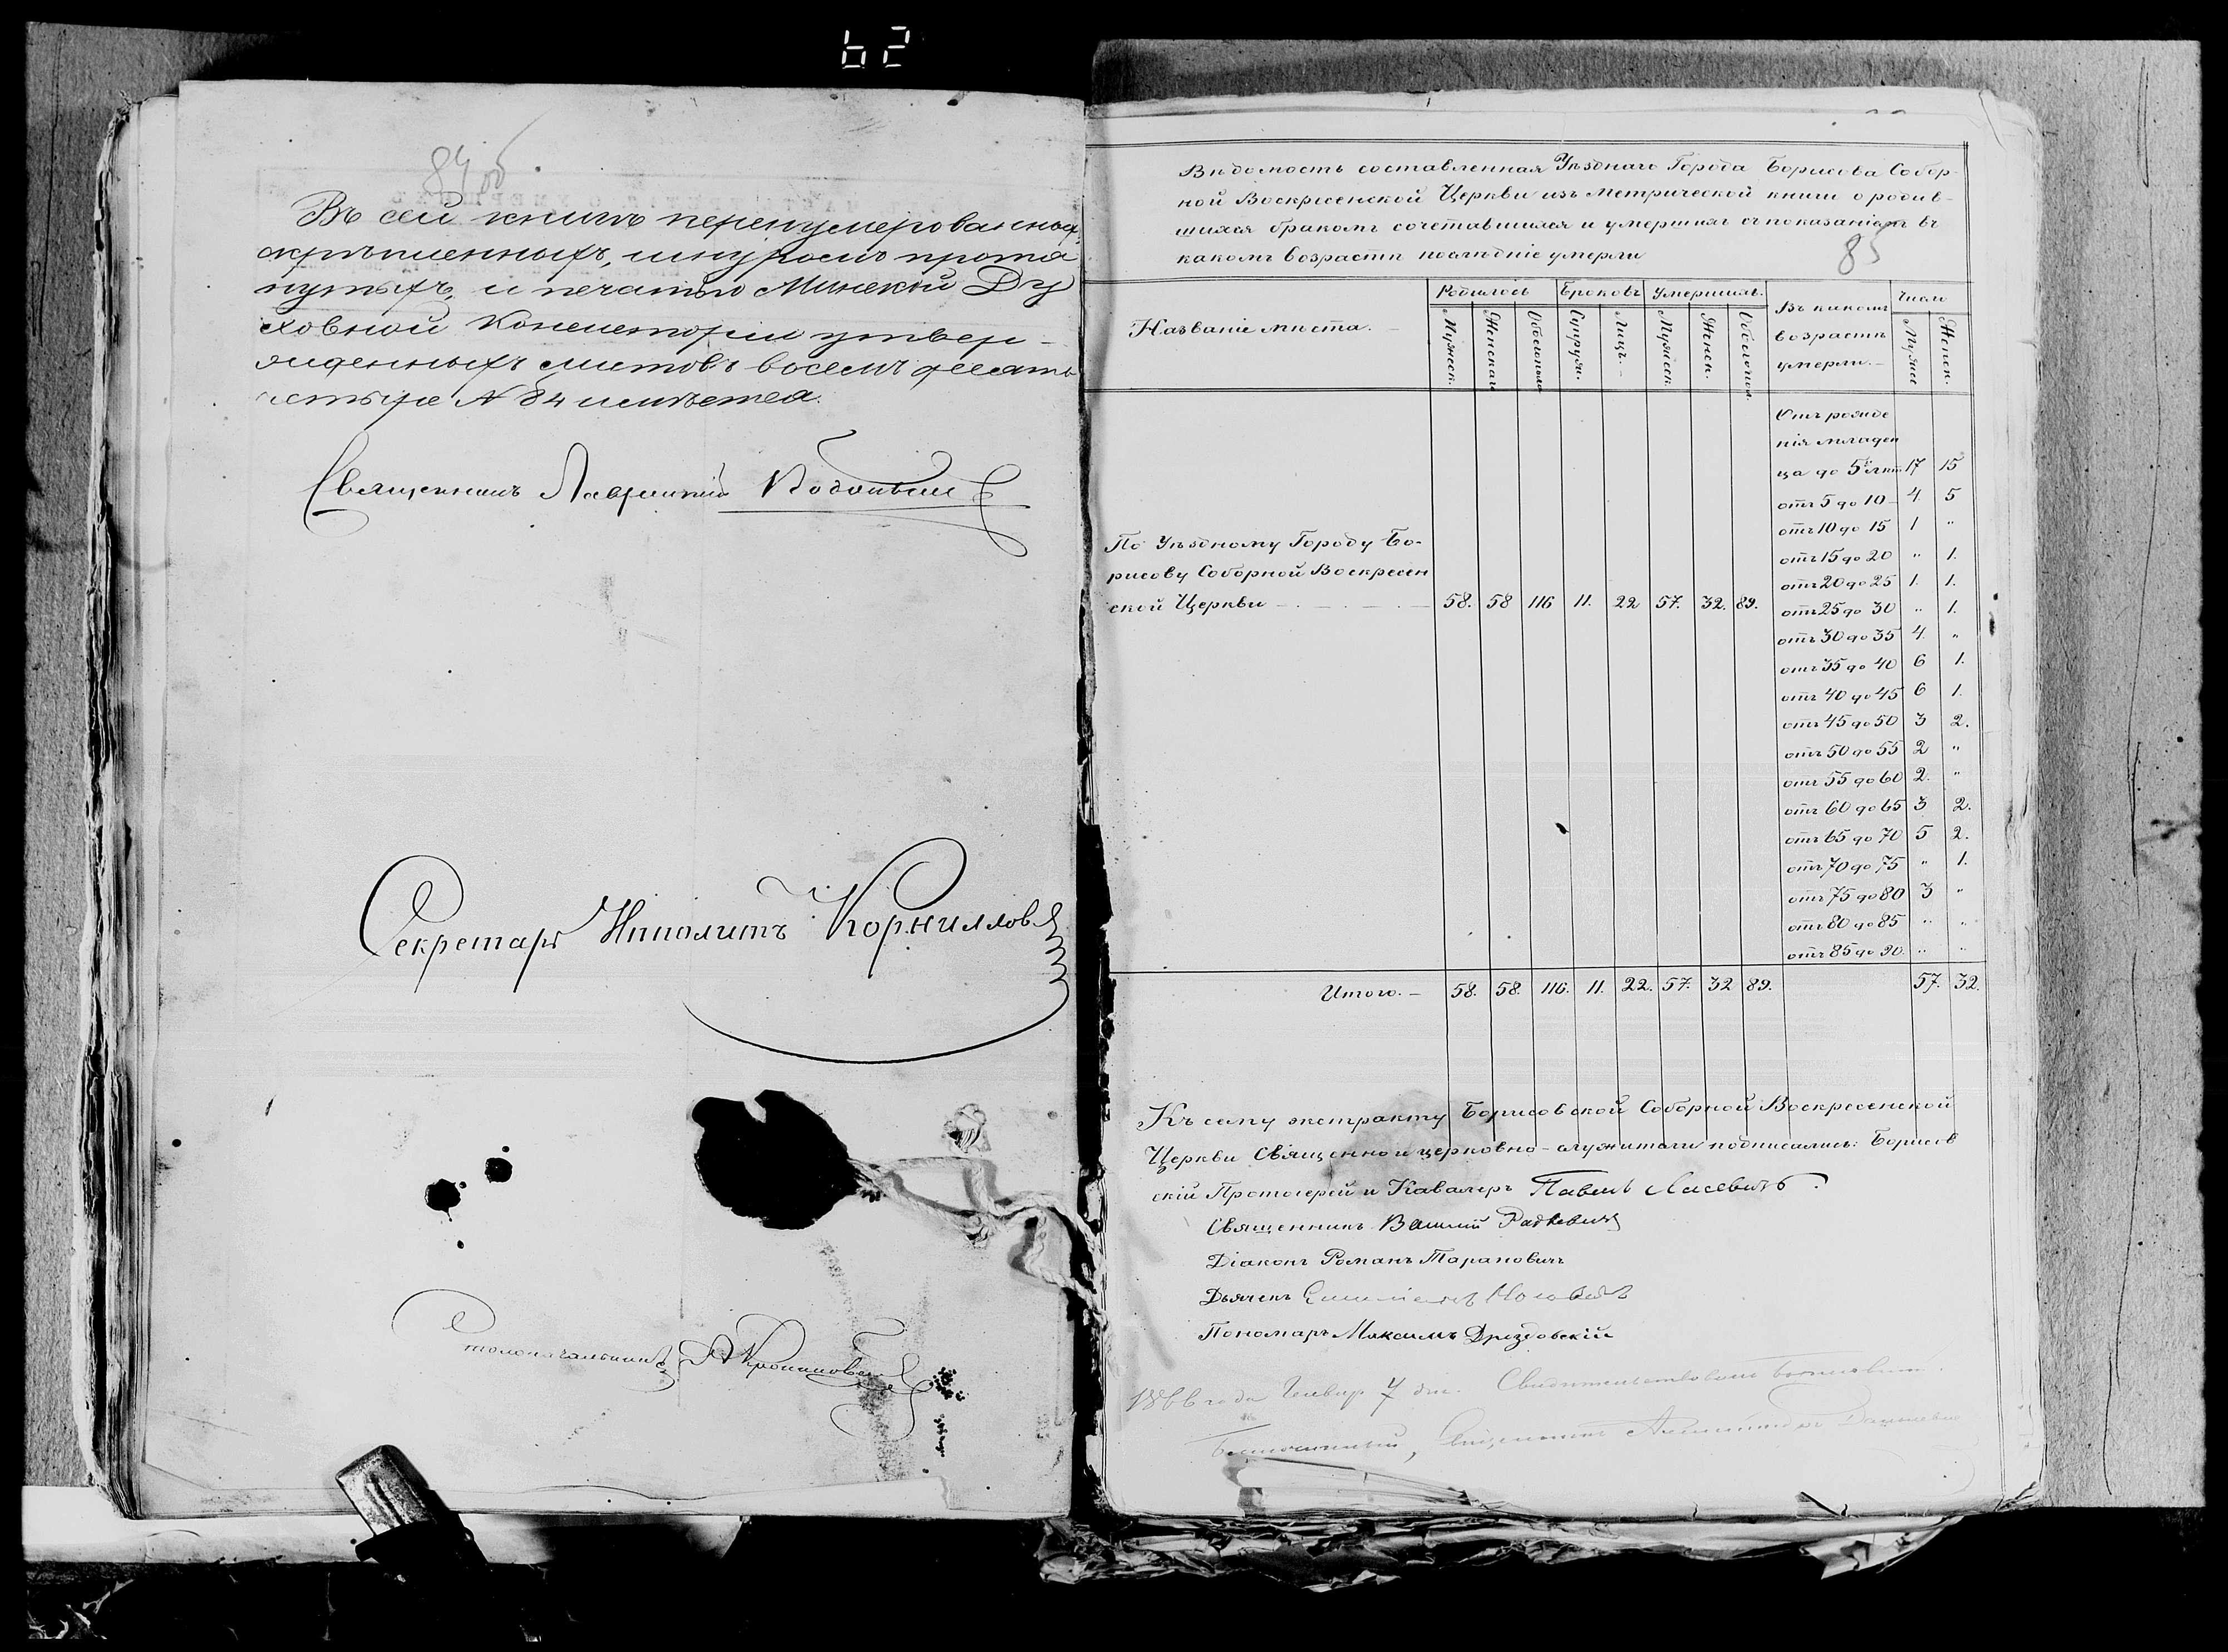 62
84 об
Въ сей книгѣ перенумерованныхъ,
скрѣпленныхъ, шнуромъ протя
нутыхъ, и печатью Минской Ду
ховной Консисторіи утвер-
жденныхъ листовъ восемъ десятъ
четыре № 84 имѣется.
Священникъ Лаврентій
Секретарь Ипполитъ Корниллов
Столоначальникъ
Вѣдомость составленная Уѣзднаго Города Борисова Собор-
ной Воскресенской Церкви изъ Метрической книги о родив-
шихся бракомъ сочетавшихся и умершихъ съ показаніемъ въ
какомъ возрастѣ послѣдніе умерли
85
Названіе мѣста. Родилось Браковъ Умершихъ. Въ какомъ возрастѣ умерли. Число
Мужеск. Женскаго Обоегопола Супруж. Лицъ. Мужеск. Женск. Обоегопол. Мужес Женск.
Отъ рожде
нія младен
ца до 5 лѣт 17 15
отъ 5 до 10 4. 5
отъ 10 до 15 1 "
отъ 15 до 20 " 1.
отъ 20 до 25 1. 1.
отъ 25 до 30 " 1.
отъ 30 до 35 4. "
отъ 35 до 40 6 1.
отъ 40 до 45 6 1.
отъ 45 до 50 3 2.
отъ 50 до 55 2 "
отъ 55 до 60 2. "
отъ 60 до 65 3 2.
отъ 65 до 70 5 2.
отъ 70 до 75 " 1.
отъ 75 до 80 3 "
отъ 80 до 85 " "
отъ 85 до 90. " "
По Уѣздному Городу Бо-
рисову Соборной Воскресен
ской Церкви 58. 58 116 11. 22 57. 32. 89.
Итого. — 58. 58. 116. 11. 22. 57. 32 89. 57. 32.
Къ сему экстракту Борисовской Соборной Воскресенской
Церкви Священно и церковно-служители подписались: Борисов
скій Протоіерей и Кавалеръ Павелъ Лисевичъ.
Священникъ Василій Радкевичъ
Діаконъ Романъ Тарановичъ
Дьячекъ
Пономарь Максимъ Дроздовскій
1866 года Генвар 7 дня. Свидѣтельствовалъ
Благочинный, Священникъ